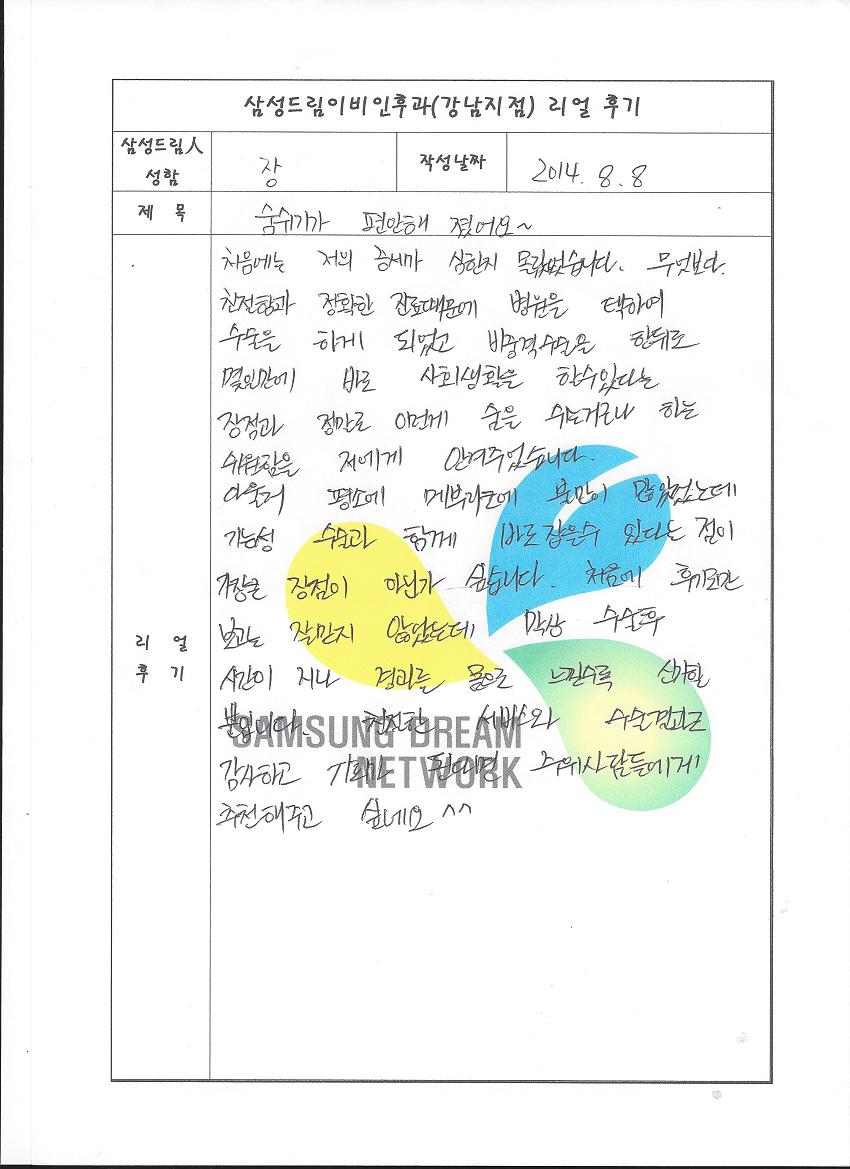 삼성드림이비인후과(강남지점) 리얼 후기
삼성드림人
성함
장
작성날짜
2014. 8. 8
제 목
숨쉬기가 편안해 졌어요~
처음에는 저의 증세가 심한지 몰랐었습니다. 무엇보다
친절함과 정확한 진료때문에 병원을 택하여
수술을 하게 되었고 비중격수술은 함뒤로
몇일만에 바로 사회생활을 할수있다는
장점과 정말로 이런게 숨을 쉬는거로나 하는
쉬원함을 저에게 안겨주었습니다.
아울러 평소에 메부리코에 불만이 많았었는데
기능성 수술과 함께 바로잡을수 있다는 점이
가장큰 장점이 아닌가 싶습니다. 처음에 후기로만
보고는 잘믿지 않았는데 막상 수술후
시간이 지나 경과를 몸으로 느낄수록 신기할
뿐입니다. 친절한 서비스와 수술결과로
감사하고 기회가 된다면 주위사람들에게
추천해주고 싶네요 ^^
리 얼
후 기
SAMSUNG DREAM
NETWORK